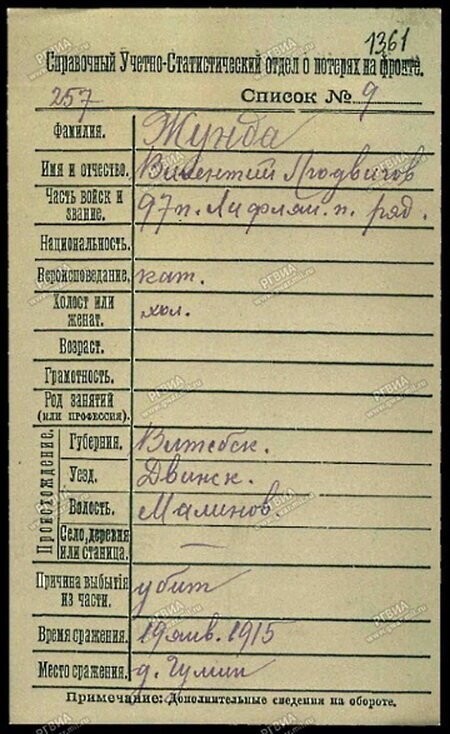 1361
Справочный Учетно-Статистический отдел о потерях на фронте.
257 Список № 9
Фамилия. Жунда
Имя и отчество. Викентий Людвигов
Часть войск и звание. 97 п. Лифлян. п. ряд.
Национальность.
Вероисповедание. кат.
Холост или женат. хол.
Возраст.
Грамотность.
Род занятий (или профессия).
Происхождение.
Губерния. Витебск.
Уезд. Двинск.
Волость. Малинов
Село, деревня или станица. —
Причина выбытия из части. убит
Время сражения. 19 янв. 1915
Место сражения. д. Гумин
Примечание: Дополнительные сведения на обороте.
РГВИА